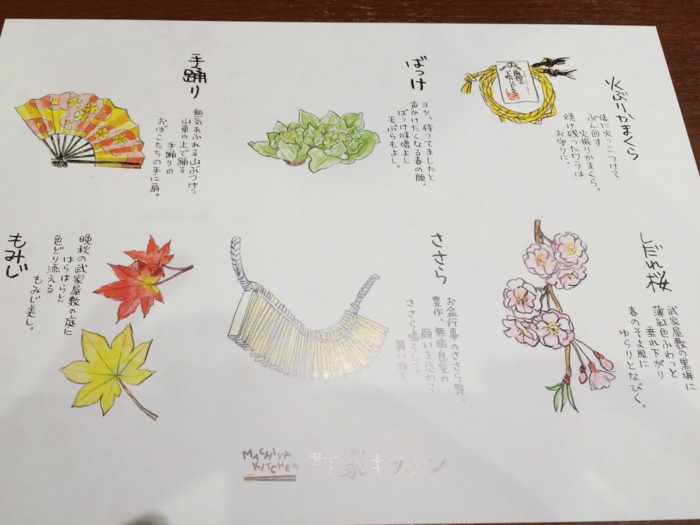 火ぶりかまくら
俵に火っこつけて
ぶん回す
火振りかまくら。
焼け残ったワラは
お守りに。
ばっけ
ヨッ、待ってましたと
声かけたくなる春の顔。
ばっけ味噌よし
天ぷらもよし。
手踊り
熱気あふれる山ぶつけ。
山車の上で踊る
手踊りの
おばこたちの手に扇。
しだれ桜
武家屋敷の黒塀に
薄紅色のふわっと
垂れ下がり
春のそよ風に
ゆらりとなびく。
ささら
お盆行事のささら舞。
豊作、無病息災の
願いを込めて
ささら鳴らして
舞い踊る
もみじ
晩秋の武家屋敷の庭に
はらはらと
色どり添える
もみじ美し。
MACHIYA
KITCHEN
町家キッチン